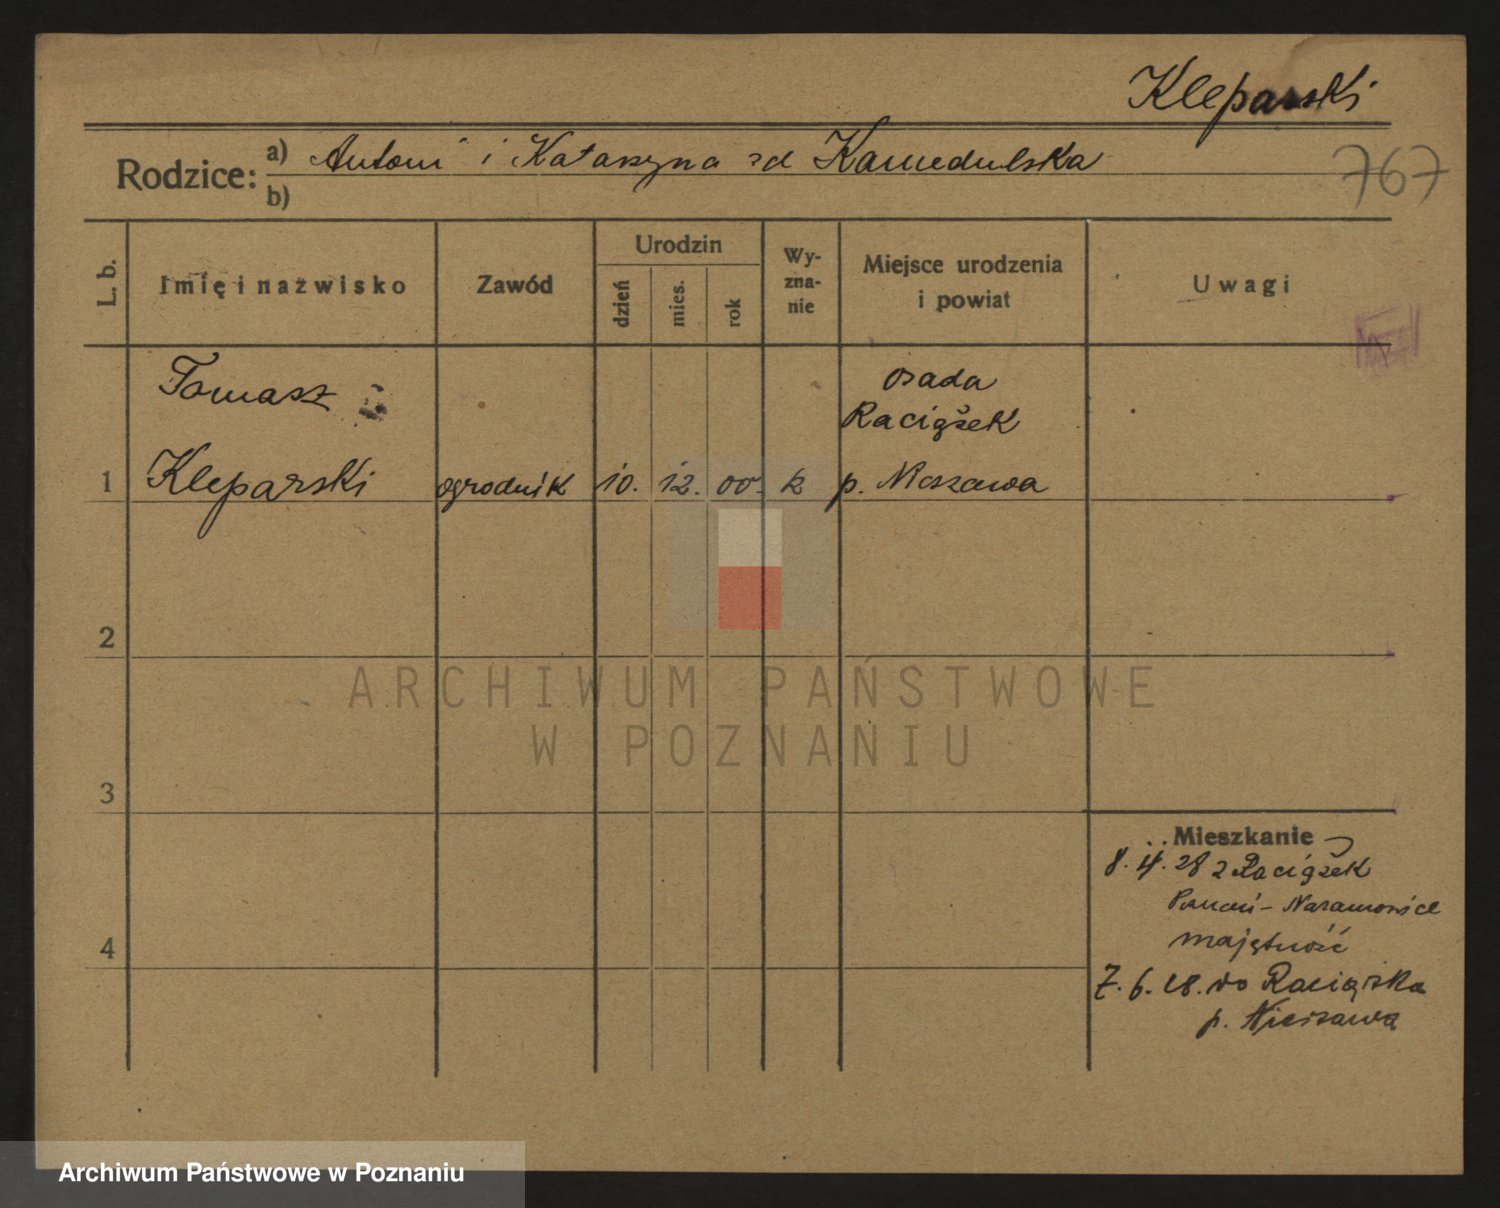 Kleparski
Rodzice: a) Antoni i Katarzyna zd Kamedulska
b)
767
L. b.
Imię i nazwisko
Zawód
Urodzin
dzień
mies.
rok
Wy-
zna-
nie
Miejsce urodzenia
i powiat
Uwagi
Tomasz
osada
Raciążek
1 Kleparski ogrodnik 10. 12. 00. k p. Nieszawa
2
ARCHIWUM PAŃSTWOWE
W POZNANIU
3
Mieszkanie
8. 4. 28 z Raciążek
Poznań - Naramowice
majętność
4
7. 6. 28. do Raciążka
p. Nieszawa
Archiwum Państwowe w Poznaniu